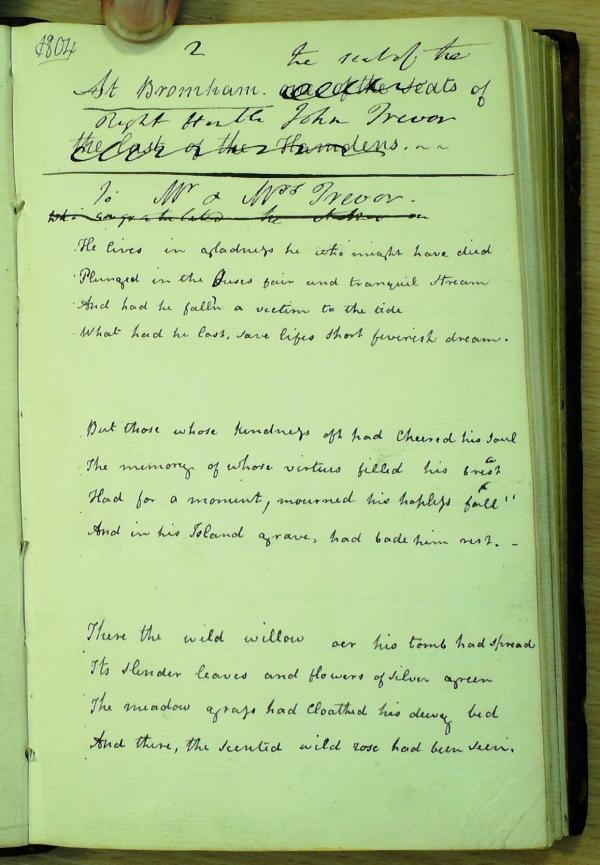 1804
2
the seat of the
At Bromham. one of the seats of
Right Honble John Trevor
the last of the Hamdens. ~ ~
To Mr & Mrs Trevor.
who congratulated he
He lives in gladness he who might have died
Plunged in the Ouses fair and tranquil Stream
And had he fall'n a victim to the tide
What had he lost, save lifes short feverish dream.
But those whose kindness oft had cheered his Soul
The memory of whose virtues filled his breast
Had for a moment, mourned his hapless fall"
And in his Island grave, had bade him rest. -
There the wild willow oer his tomb had spread
Its slender leaves and flowers of silver green
The meadow grass had cloathed his dewey bed
And there, the scented wild rose had been seen.